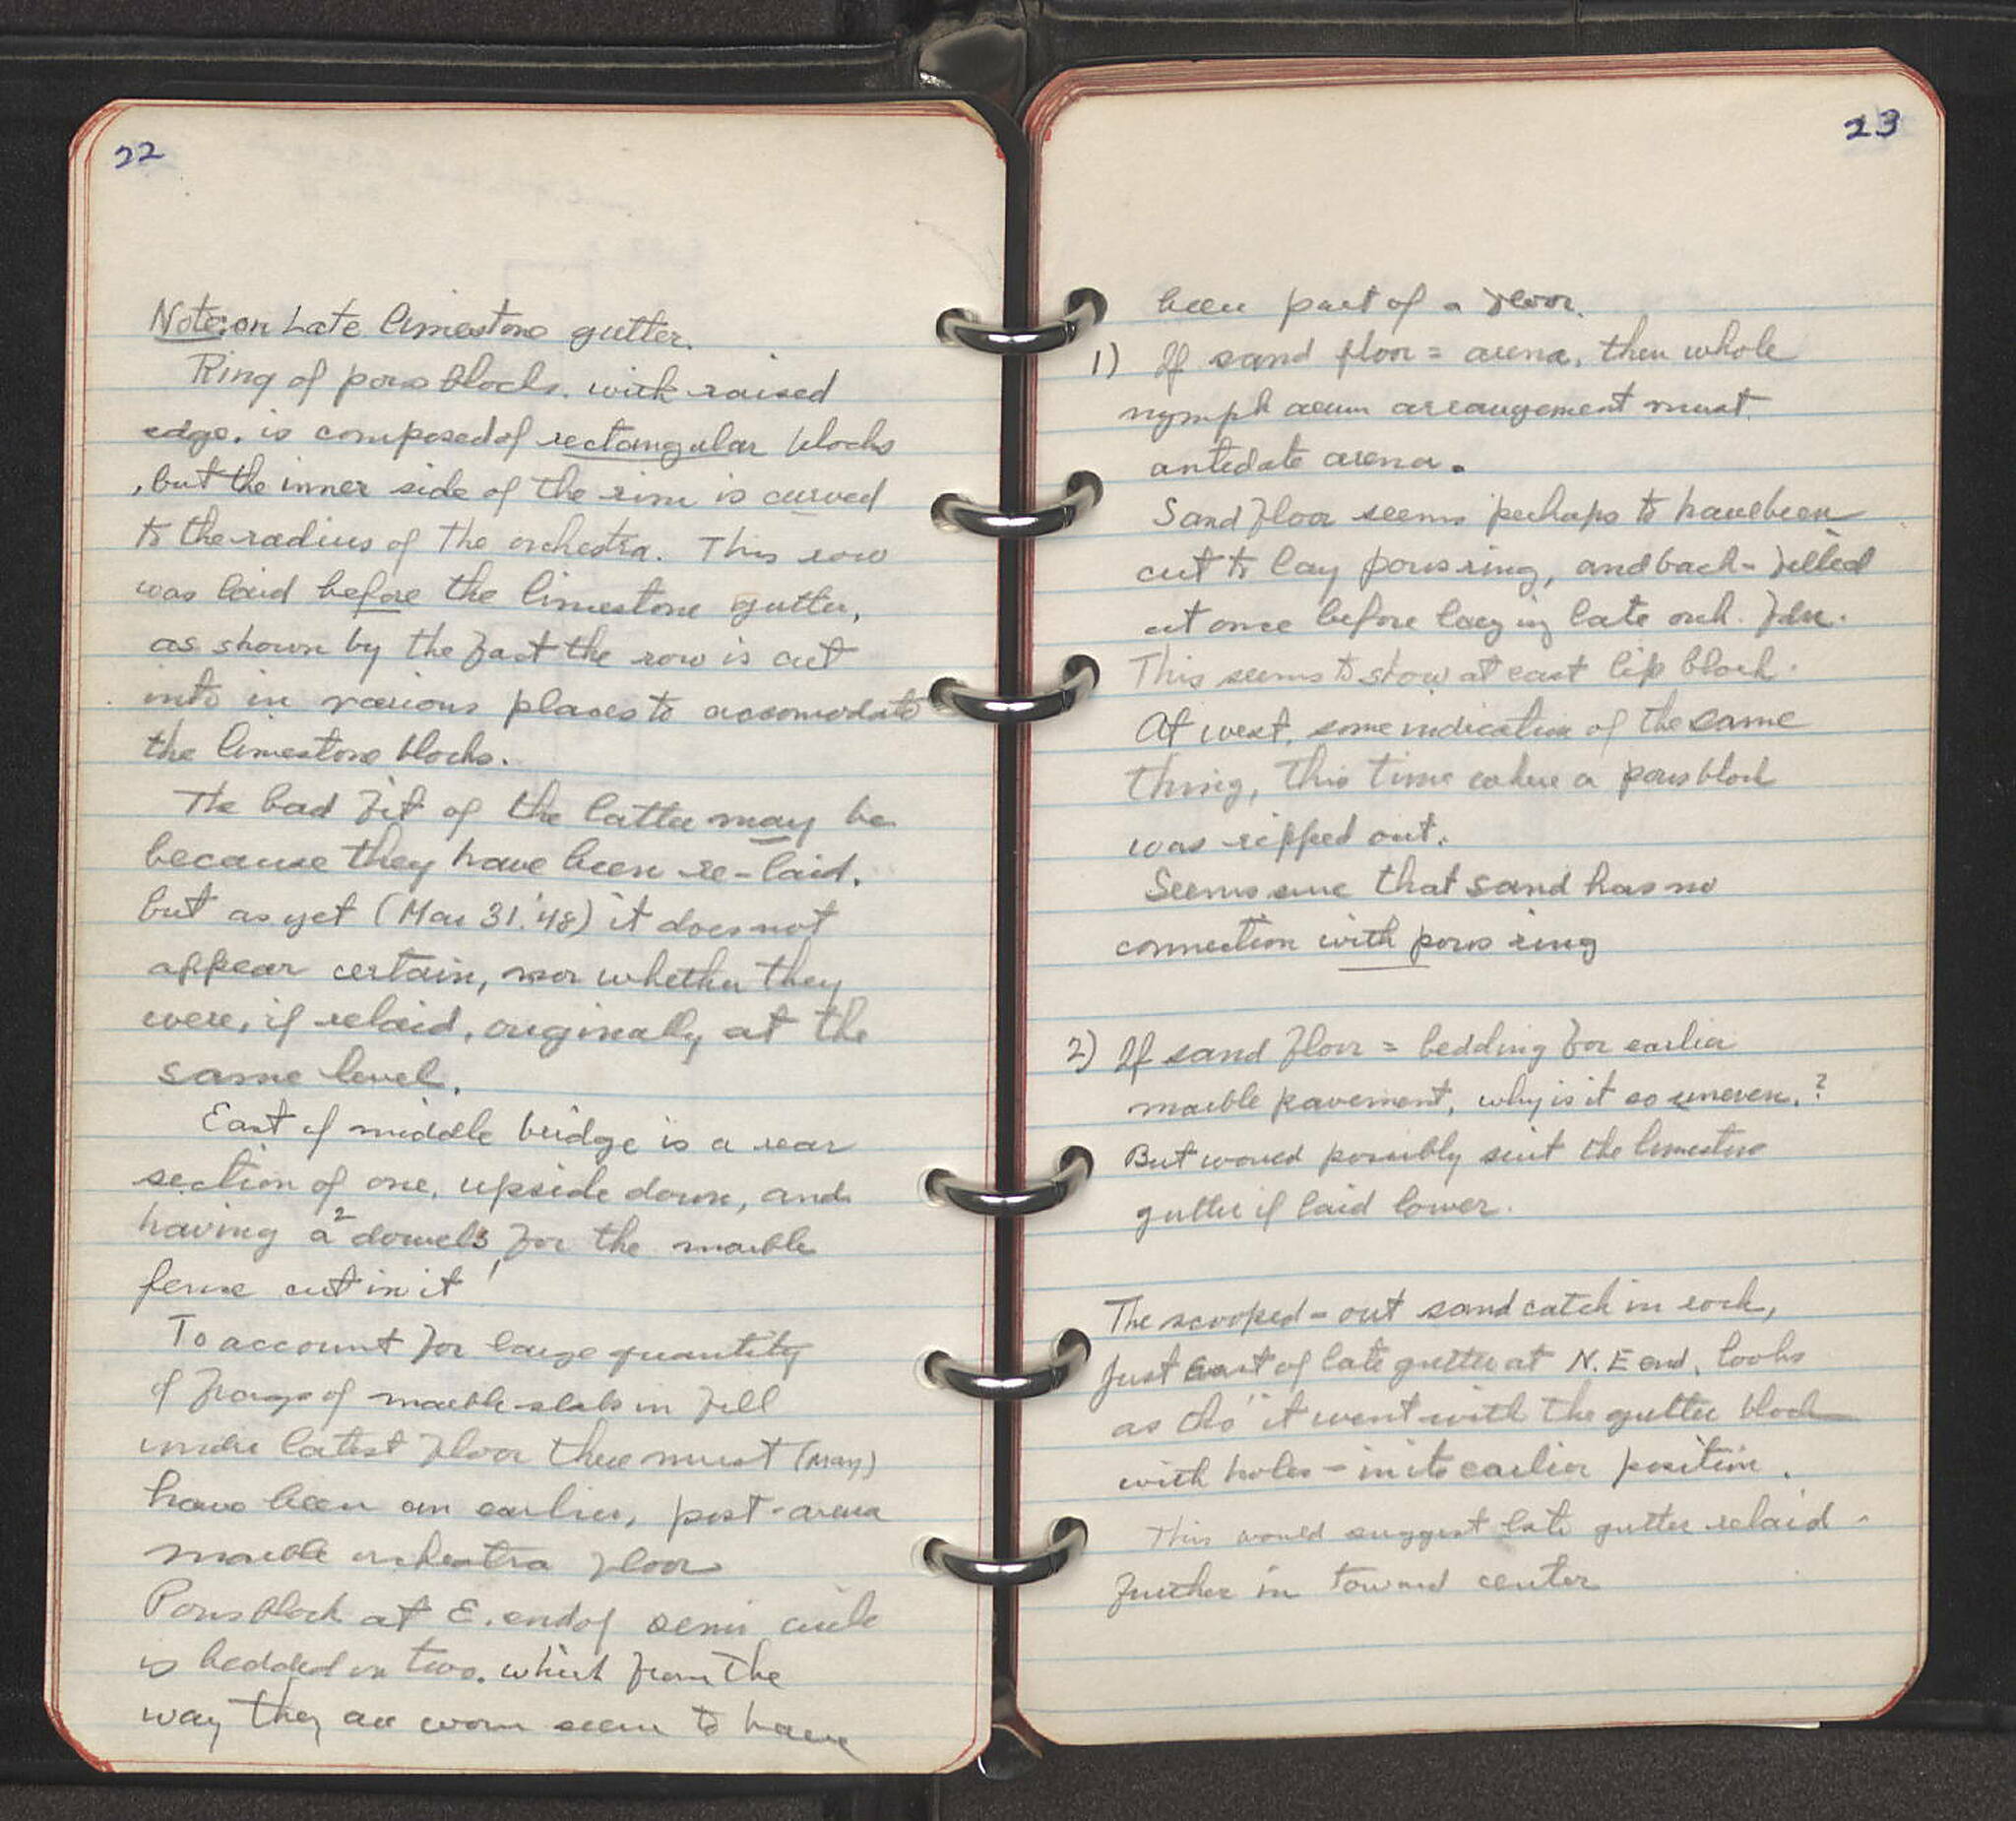 22
Note on Late limestone gutter.
Ring of poros blocks. with raised
edge. is composed of rectangular blocks
, but the inner side of the rim is curved
to the radius of the orchestra. This row
was laid before the limestone gutter,
as shown by the fact the row is cut
into in various places to accomodate
the limestone blocks.
The bad fit of the latter may be
because they have been re-laid.
but as yet (Mar 31. '48) it does not
appear certain, nor whether they
were, if relaid, originally at the
same level.
East of middle bridge is a rear
section of one, upside down, and
having a 2 dowels for the marble
fence cut in it!
To account for large quantity
of frags of marble slabs in fill
under latest floor there must (may)
have been an earlier, post-arena
marble orchestra floor
Poros block at E. end of semi circle
is bedded on two. which from the
way they are worn seem to have
23
been part of a floor.
1) If sand floor = arena, then whole
nymphaeum arrangement must
antedate arena.
Sand floor seems perhaps to have been
cut to lay poros ring, and back-filled
at once before laying late orch. floor.
This seems to show at east lip block.
At west, some indication of the same
thing, this time where a poros block
was ripped out.
Seems sure that sand has no
connection with poros ring
2) If sand floor = bedding for earlier
marble pavement, why is it so uneven.?
But would possibly suit the limestone
gutter if laid lower.
The scooped-out sand catch in rock,
just East of late gutter at N.E end, looks
as tho' it went with the gutter block
with holes - in its earlier position.
This would suggest late gutter relaid -
further in toward center